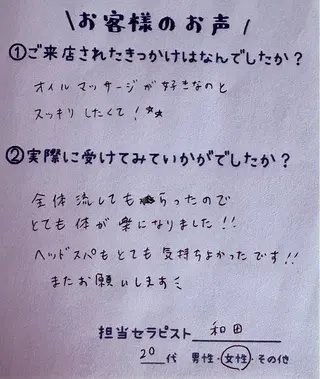 \お客様のお声/
①ご来店されたきっかけはなんでしたか?
オイルマッサージが好きなのと
スッキリしたくて!☆☆
②実際に受けてみていかがでしたか?
全体流してもらったので
とても体が楽になりました!!
ヘッドスパもとても気持ちよかったです!!
またお願いします
担当セラピスト 和田
20代 男性・女性・その他